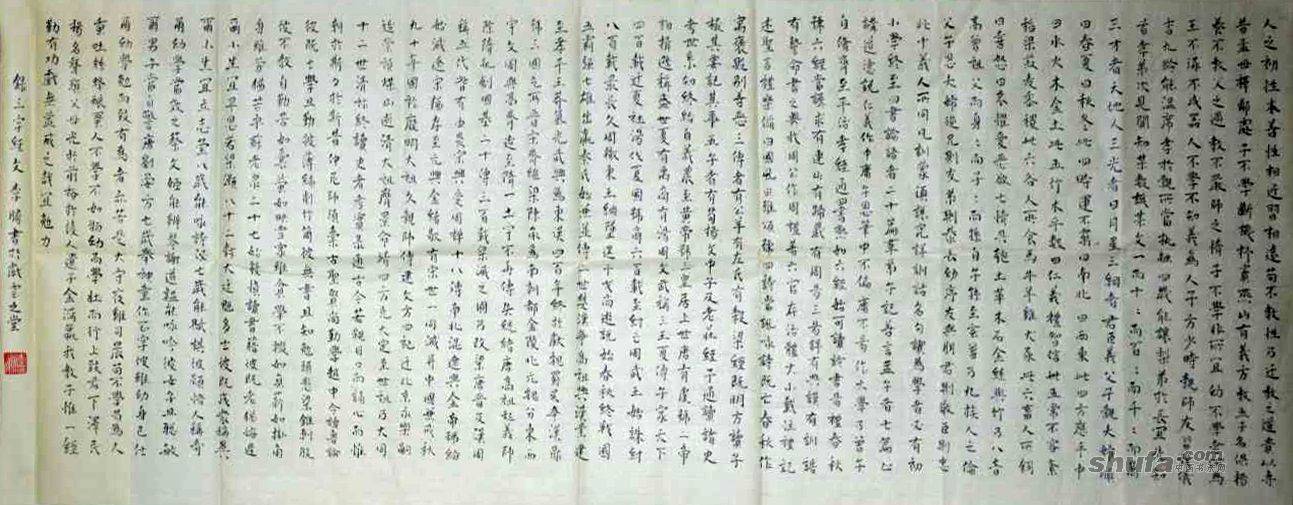 人之初性本善性相近習相遠苟不教性乃遷教之道貴以專
昔孟母擇鄰處子不學斷機杼竇燕山有義方教五子名俱揚
養不教父之過教不嚴師之惰子不學非所宜幼不學老何為
玉不琢不成器人不學不知義為人子方少時親師友習禮儀
香九齡能溫席孝於親所當執融四歲能讓梨弟於長宜先知
首孝弟次見聞知某數識某文一而十〻而百〻而千〻而萬
三才者天地人三光者日月星三綱者君臣義父子親夫婦順
曰春夏曰秋冬此四時運不窮曰南北曰西東此四方應乎中
曰水火木金土此五行本乎數曰仁義禮智信此五常不容紊
稻粱菽麥黍稷此六谷人所食馬牛羊雞犬豕此六畜人所飼
曰喜怒曰哀懼愛惡欲七情具匏土革木石金絲與竹乃八音
高曾祖父而身〻而子〻而孫自子孫至玄曾乃九族人之倫
父子恩夫婦從兄則友弟則恭長幼序友與朋君則敬臣則忠
此十義人所同凡訓蒙須講究詳訓詁名句讀為學者必有初
小學終至四書論語者二十篇羣弟子記善言孟子者七篇止
講道德說仁義作中庸子思筆中不偏庸不易作大學乃曾子
自脩齊至平治孝經通四書熟如六經始可讀詩書易禮春秋
號六經當講求有連山有歸藏有周易三易詳有典謨有訓誥
有誓命書之奧我周公作周禮著六官存治體大小戴註禮記
述聖言禮樂備曰國風曰雅頌號四詩當諷咏詩既亡春秋作
寓褒貶別善惡三傳者有公羊有左氏有穀梁經既明方讀子
撮其要記其事五子者有荀楊文中子及老莊經子通讀諸史
考世系知終始自羲農至黃帝號三皇居上世唐有虞號二帝
相揖遜稱盛世夏有禹商有湯周文武稱三王夏傳子家天下
四百載遷夏社湯伐夏國號商六百載至紂亡周武王始誅紂
八百載最長久周轍東王綱墜逞干戈尚遊說始春秋終戰國
五霸強七雄出嬴秦氏始兼并傳二世楚漢爭高祖興漢業建
至孝平王莽篡光武興為東漢四百年終於獻魏蜀吳爭漢鼎
號三國迄兩晉宋齊繼梁陳承為南朝都金陵北元魏分東西
宇文周與高齊迨至隋一土宇不再傳失統緒唐高祖起義師
除隋亂創國基二十傳三百載梁滅之國乃改梁唐晉及漢周
稱五代皆有由炎宋興受周禪十八傳南北混遼與金帝號紛
迨滅遼宋猶存至元興金緒歇有宋世一同滅并中國兼戎狄
九十年國祚廢明太祖久親師傳建文方四祀遷北京永樂嗣
迨崇禎煤山逝清太祖膺景命靖四方克大定至世祖乃大同
十二世清祚終讀史者考實錄通古今若親目口而誦心而惟
朝於斯夕於斯昔仲尼師項橐古聖賢尚勤學趙中令讀魯論
彼既仕學且勤披蒲編削竹簡彼無書且知勉頭懸梁錐刺股
彼不教自勤苦如囊螢如映雪家雖貧學不輟如負薪如掛角
身雖勞猶苦卓蘇老泉二十七始發憤讀書籍彼既老猶悔遲
爾小生宜早思若梁灝八十二對大廷魁多士彼既成眾稱異
爾小生宜立志瑩八歲能咏詩泌七歲能賦棋彼穎悟人稱奇
爾幼學當效之蔡文姬能辨琴謝道韞能咏吟彼女子且聰敏
爾男子當自警唐劉晏方七歲舉神童作正字彼雖幼身已仕
爾幼學勉而致有為者亦若是犬守夜雞司晨苟不學曷為人
蠶吐絲蜂釀蜜人不學不如物幼而學壯而行上致君下澤民
揚名聲顯父母光於前裕於後人遺子金滿籯我教子惟一經
勤有功戲無益戒之哉宜勉力
錄三字經文 李勝書於戲雲之堂
shufa.com
中国书法网